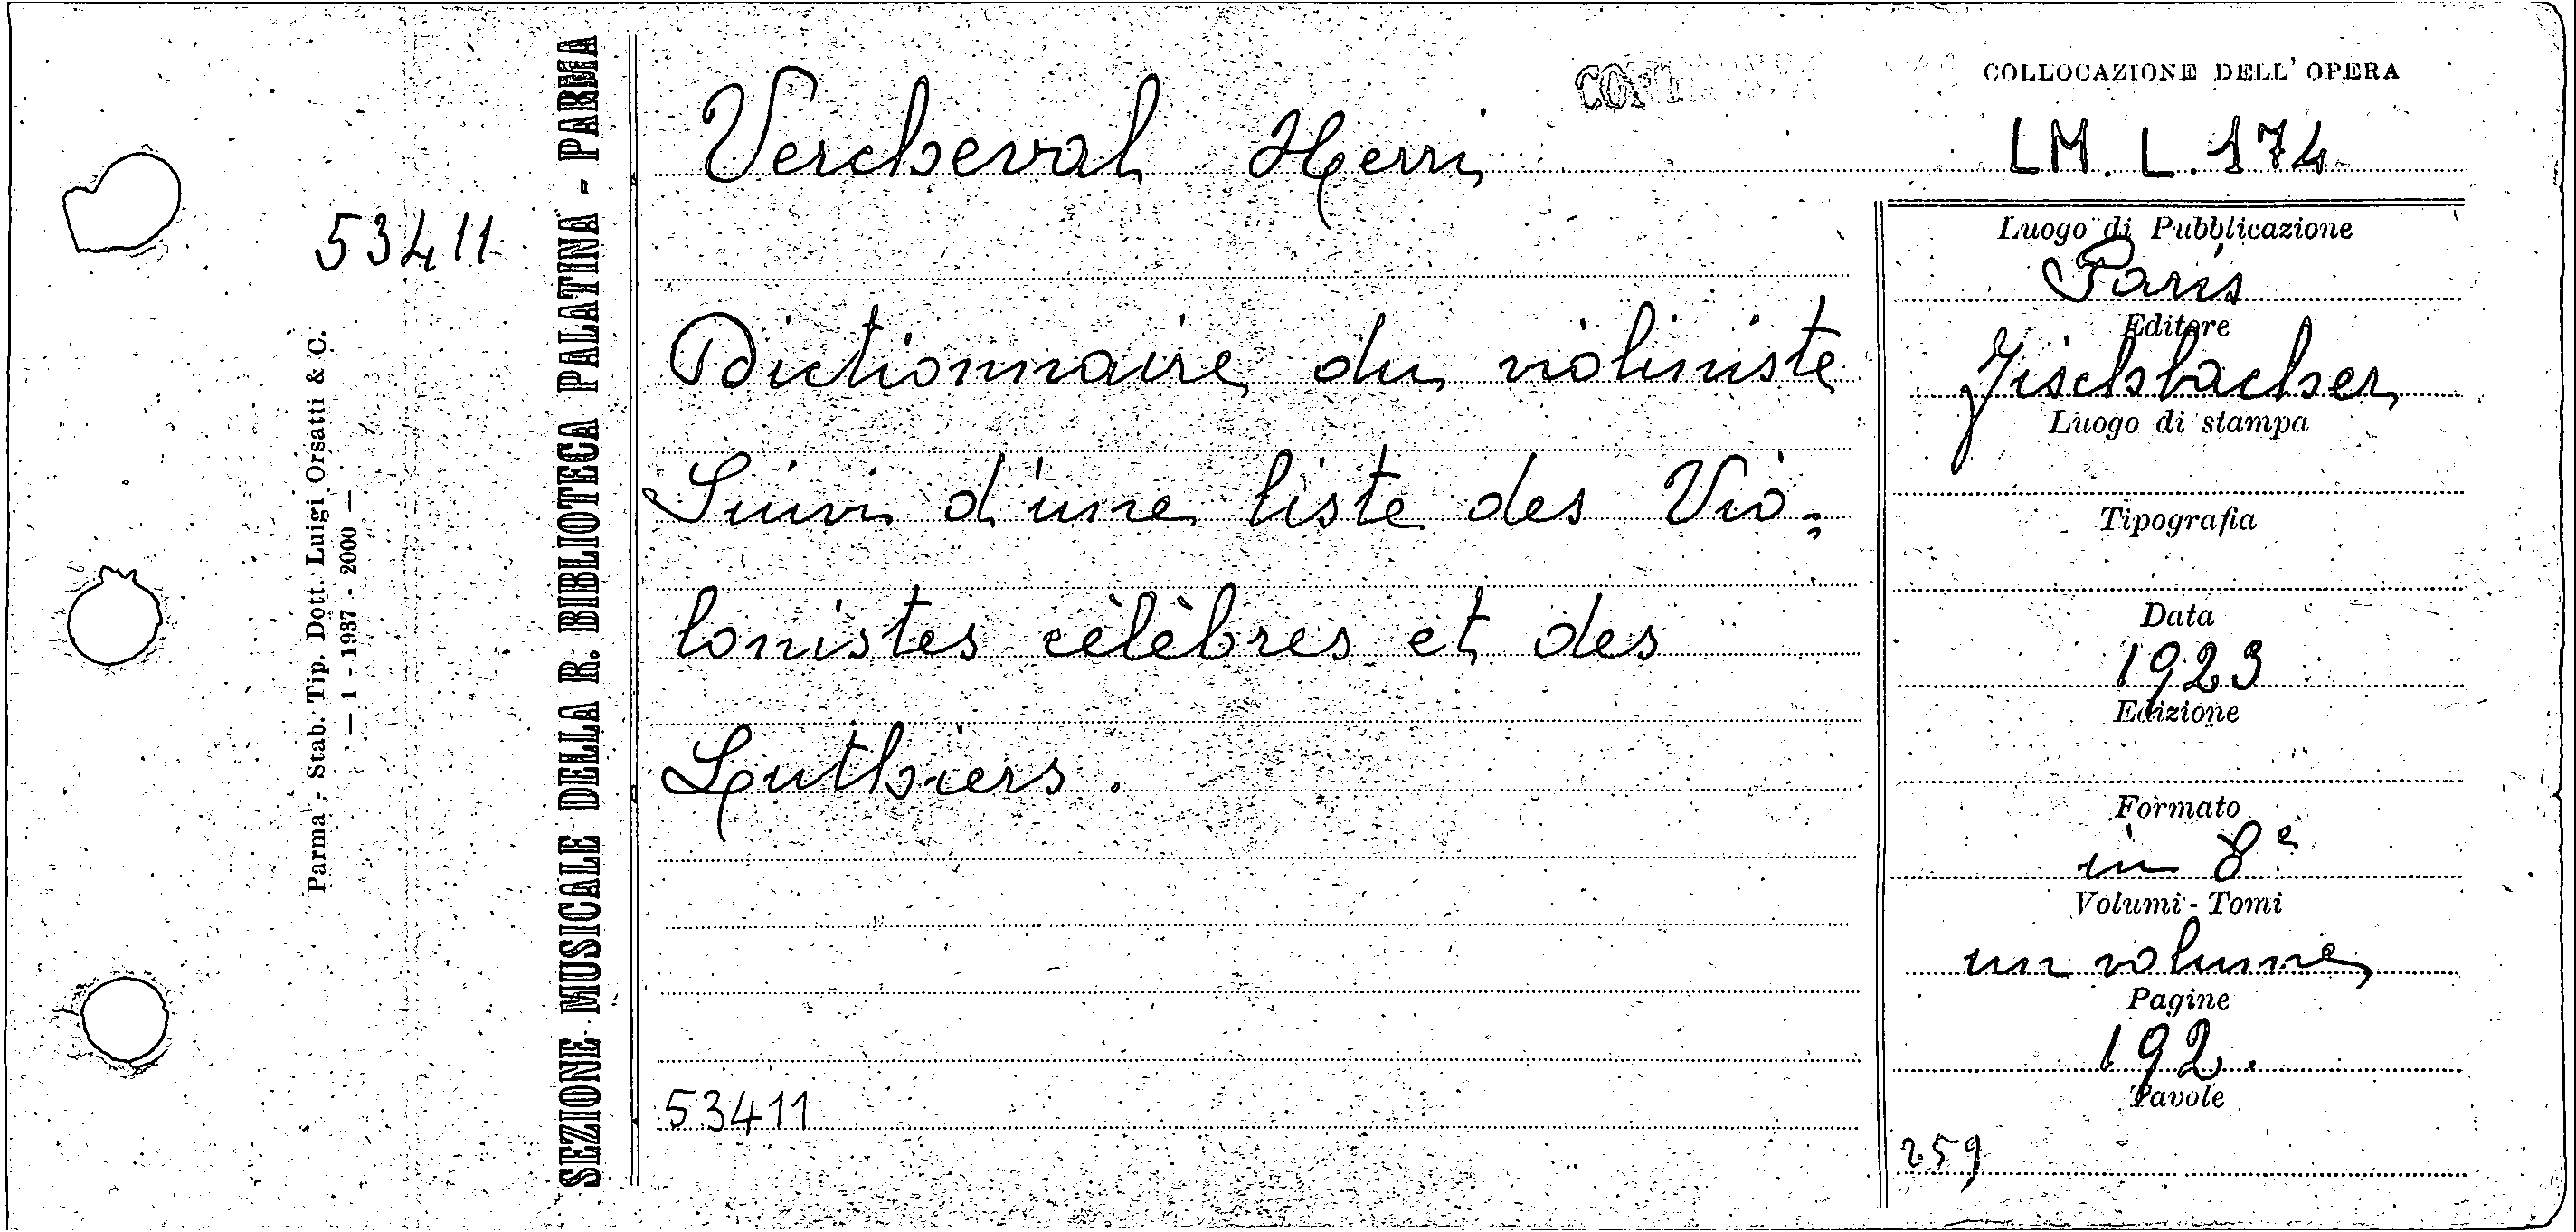 COLLOCAZIONE DELL' OPERA
Vercheval Henri
LM. L. 174
53411
Parma - Stab. Tip. Dott. Luigi Orsatti & C.
— 1 - 1937 - 2000 —
SEZIONE MUSICALE DELLA R. BIBLIOTECA PALATINA - PARMA
Dictionnaire du violiniste
Suivi d'une liste des Vio=
lonistes cèlèbres et des
Luthiers.
53411
Luogo di Pubblicazione
Paris
Editore
Fischbacher
Luogo di stampa
Tipografia
Data
1923
Edizione
Formato
in 8°
Volumi - Tomi
un volume
Pagine
192.
Tavole
259